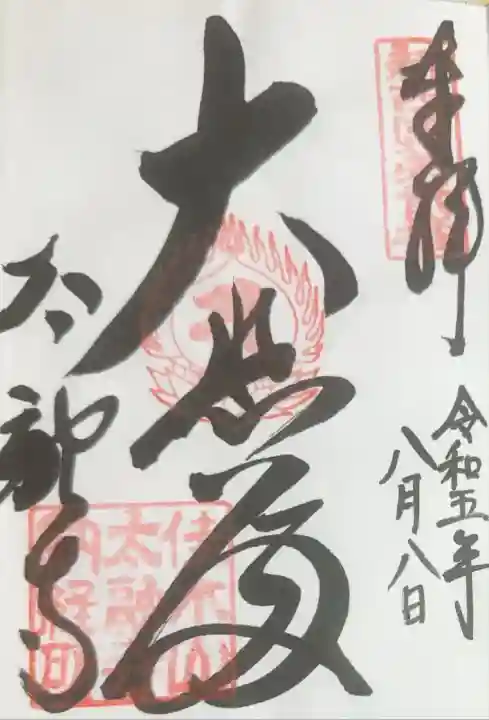 奉拝
令和五年
八月八日
大悲殿
太融寺
佳木山
太融寺
納経印